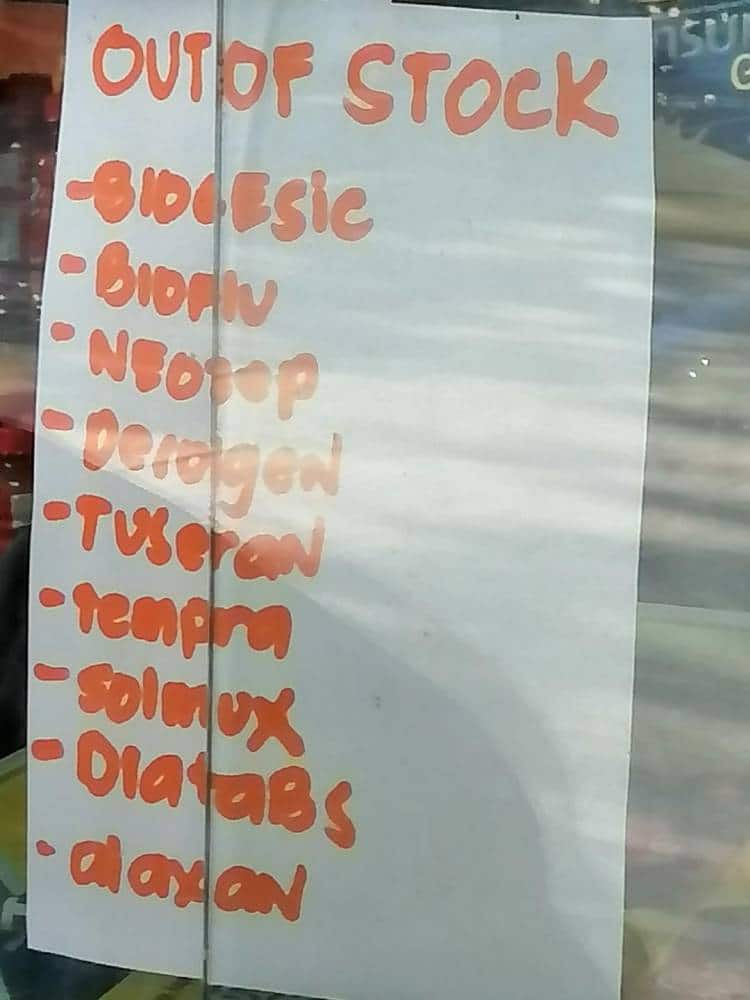 OUT OF STOCK
- BIOGESIC
- BIOFLU
- NEOZEP
- Decolgen
- TUSeran
- tempra
- solmux
- DIataBS
- alaxan